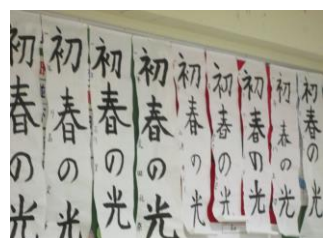 初春の光
初春の光
初春の光
初春の光
初春の光
初春の光
初春の光
初春の光
初春の光